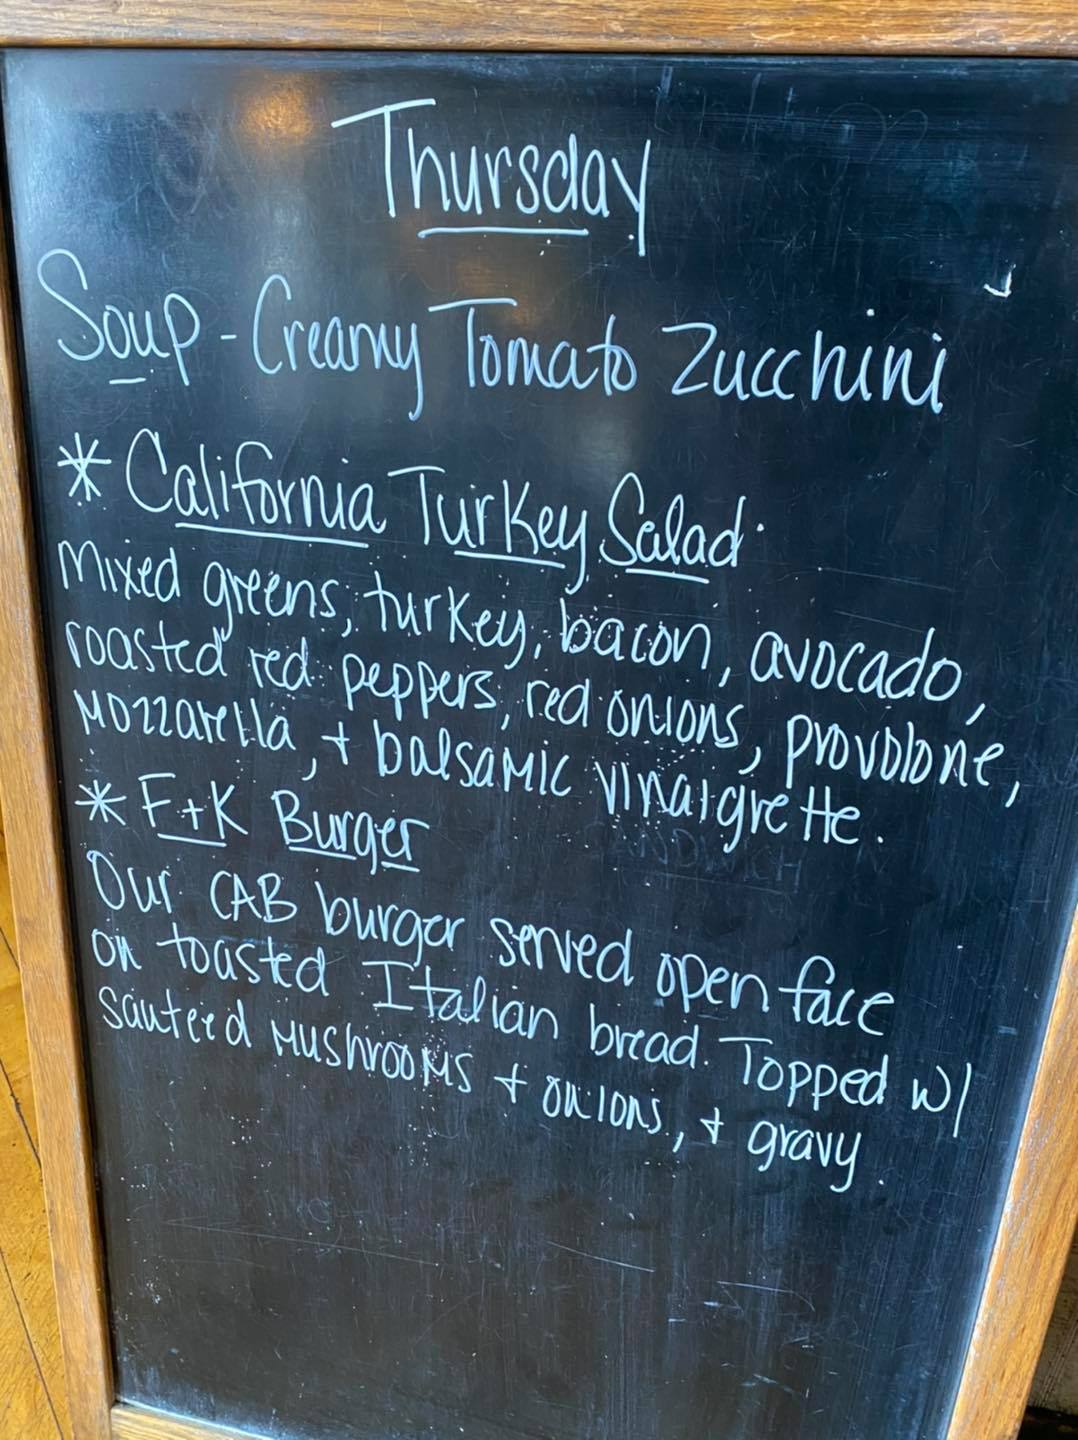 Thursday
Soup - Creamy Tomato Zucchini
* California Turkey Salad
Mixed greens, turkey, bacon, avocado,
roasted red peppers, red onions, provolone,
Mozzarella, + balsamic vinaigrette.
* F+K Burger
Our CAB burger served open face
on toasted Italian bread. Topped w/
sauteed mushrooms + onions, + gravy.